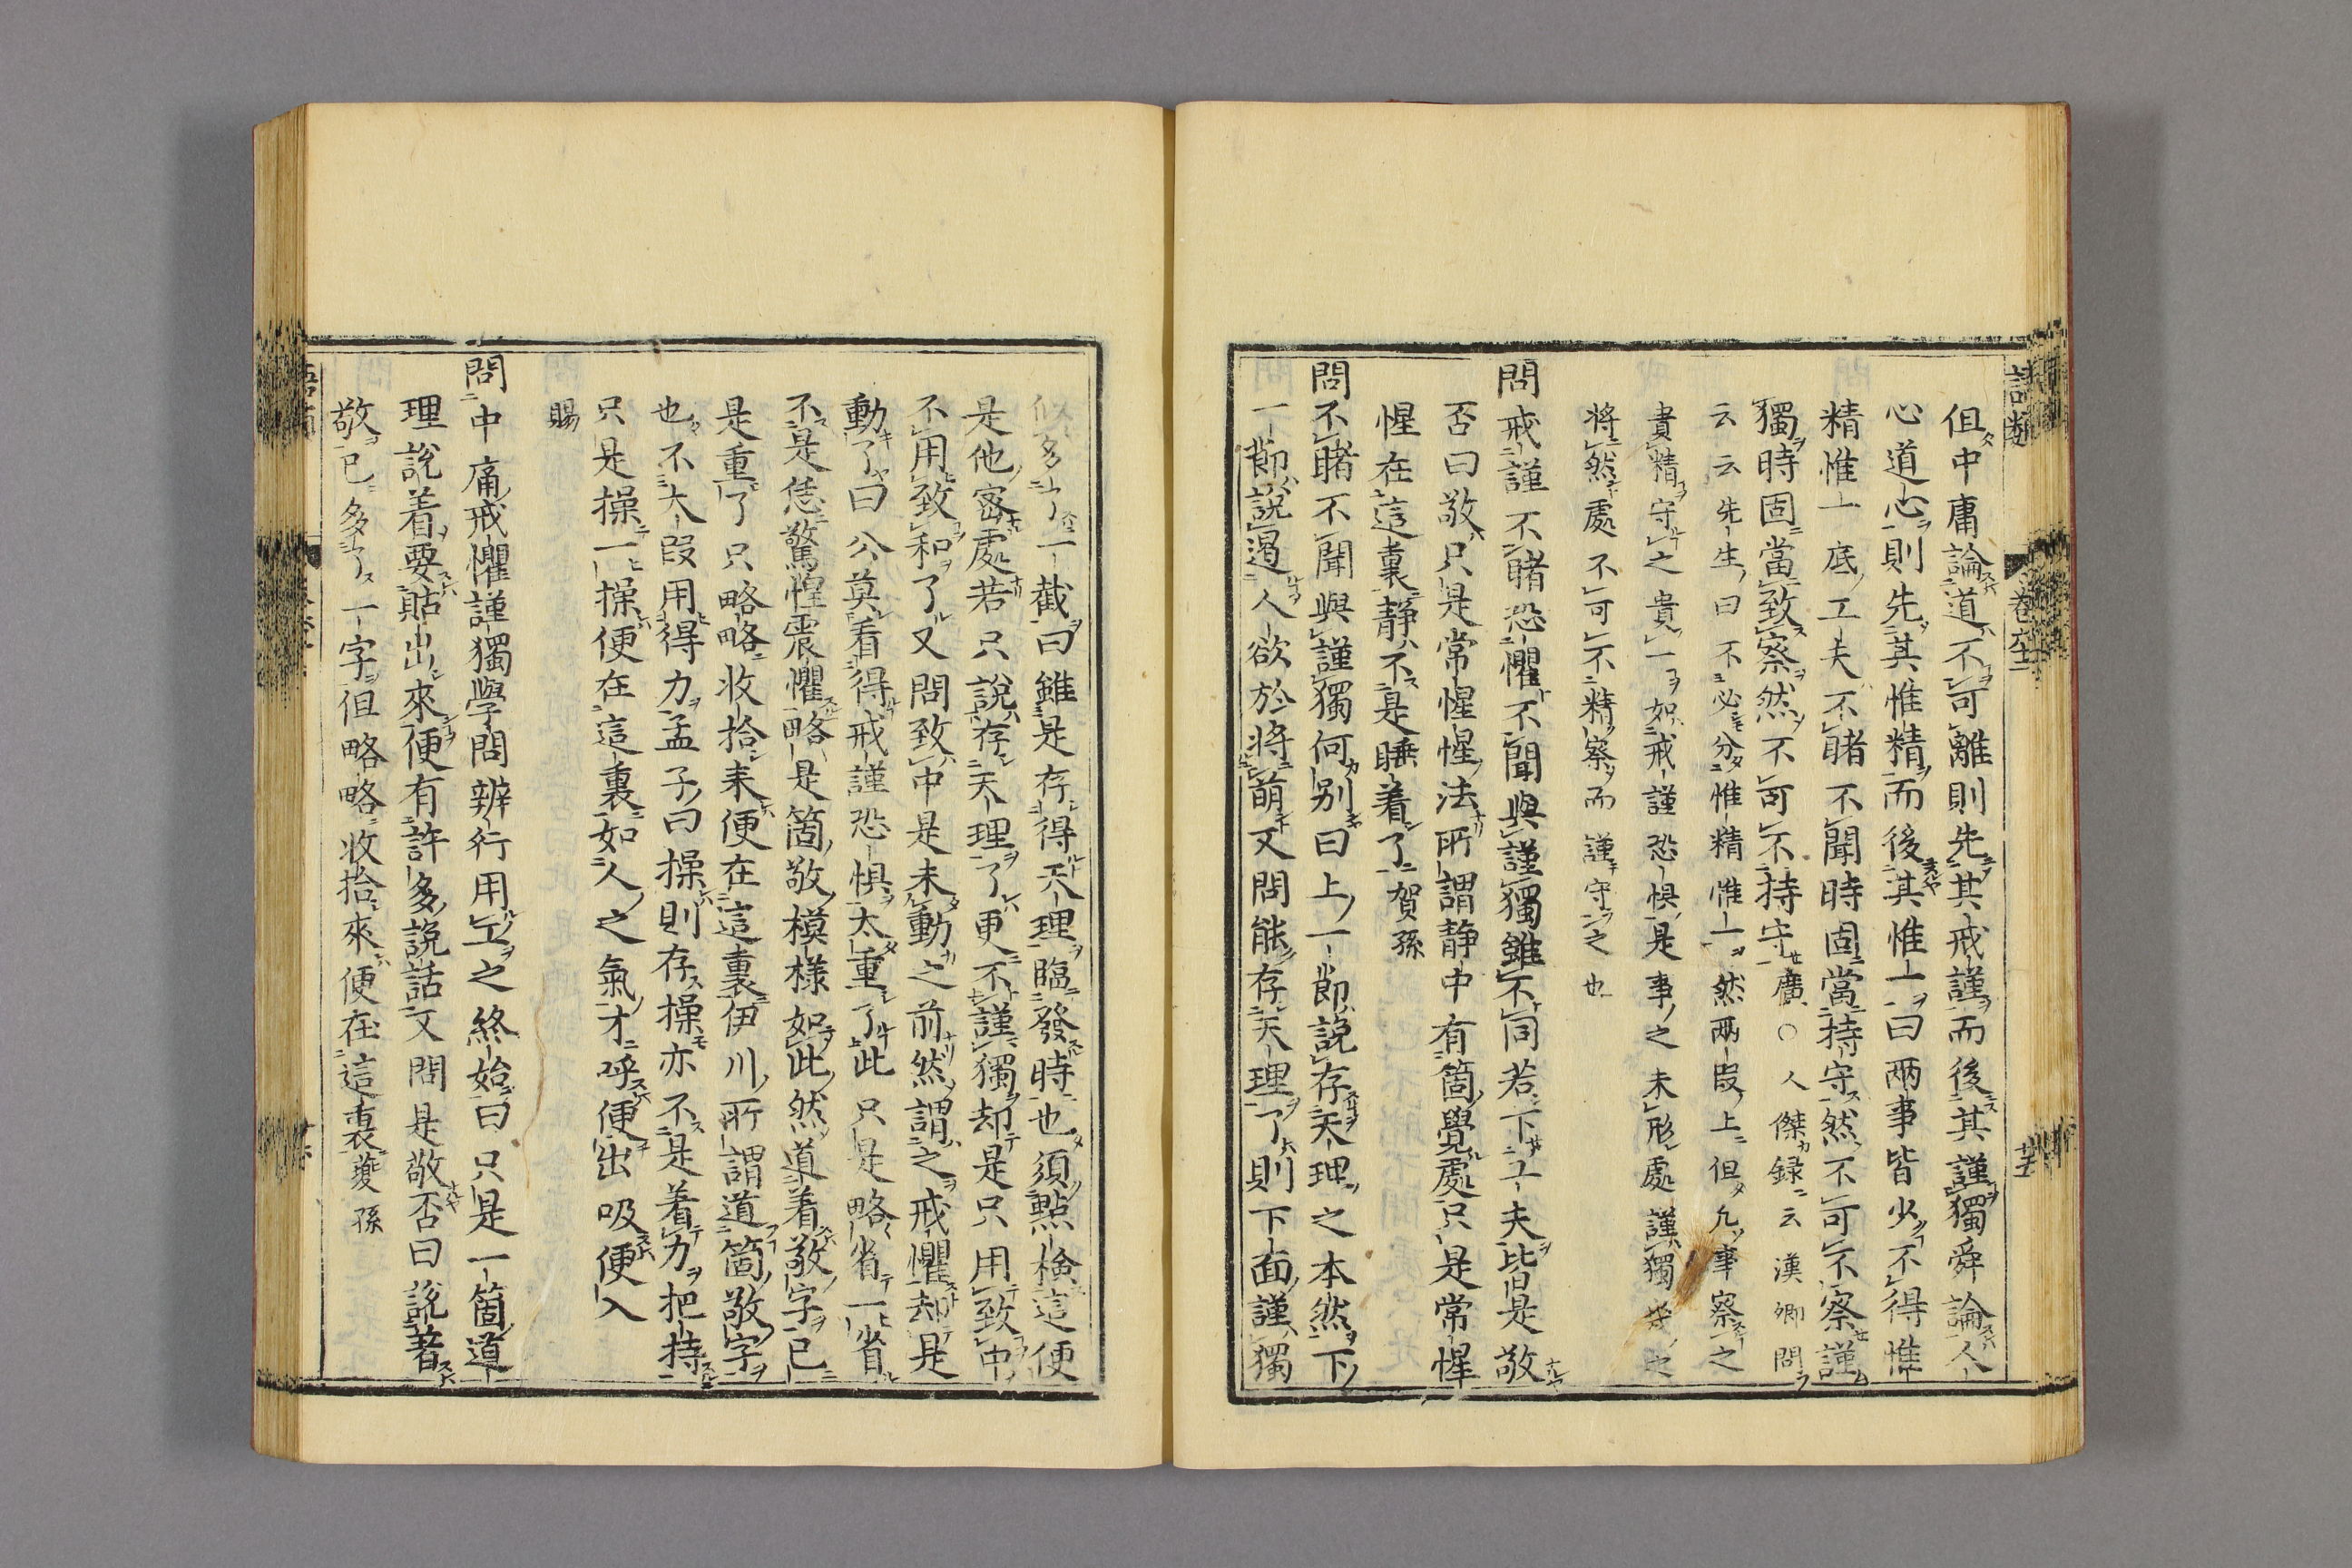 語類 卷六十二 十五
但中庸論道不可離則先其戒謹而後其謹獨舜論人
心道心則先其惟精而後其惟一曰兩事皆少不得惟
精惟一底工夫不睹不聞時固當持守然不可不察謹
獨時固當致察然不可不持守廣○人傑録云漢卿問
云云先生曰不必分惟精惟一然兩段上但凡事察之
貴精守之貴一如戒謹恐惧是事之未形處謹獨幾之
將然處不可不精察而謹守之也
問戒謹不睹恐懼不聞與謹獨雖不同若下工夫皆是敬
否曰敬只是常惺惺法所謂静中有箇覺處只是常惺
惺在這裏静不是睡着了賀孫
問不睹不聞與謹獨何别曰上一節說存天理之本然下
一節說遏人欲於將萌又問能存天理了則下面謹獨
似多了一截曰雖是存得天理臨發時也須點檢這便
是他密處若只說存天理了更不謹獨却是只用致中
不用致和了又問致中是未動之前然謂之戒懼却是
動了曰公莫看得戒謹恐惧太重了此只是略省一省
不是恁驚惶震懼略是箇敬模樣如此然道着敬字已
是重了只略略收拾来便在這裏伊川所謂道箇敬字
也不大段用得力孟子曰操則存操亦不是着力把持
只是操一操便在這裏如人之氣才呼便出吸便入
賜
問中庸戒懼謹獨學問辨行用工之終始曰只是一箇道
理說着要貼出來便有許多説話又問是敬否曰說著
敬已多了一字但略略收拾來便在這裏夔孫